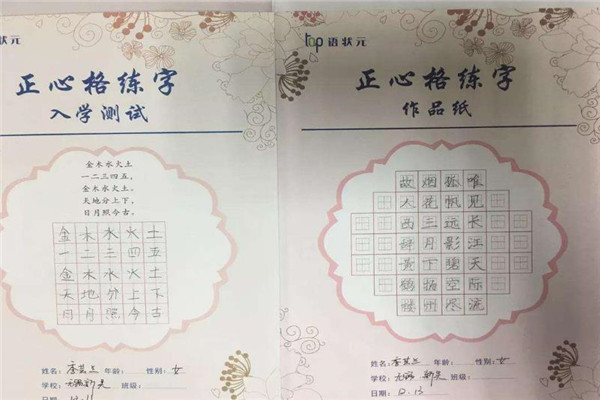 状元
正心格练字
入学测试
金木水火土
一二三四五，
金木水火土。
天地分上下，
日月照今古。
金木水火土
一二三四五
金木水火土
天地分上下
日月照今古
姓名：李 年龄： 性别：女
学校：无锡新吴 班级：
日期：12.11
top 语状元
正心格练字
作品纸
故烟孤唯
人花帆见
西三远长
辞月影江
黄下碧天
鹤扬空际
楼州尽流
姓名：李 年龄： 性别：女
学校：无锡 新吴 班级：
日期：12.13